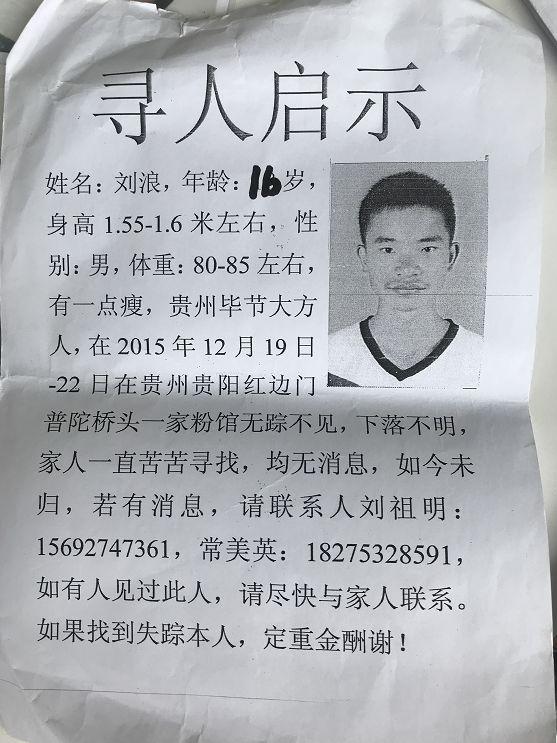 寻人启示
姓名：刘浪，年龄：16岁，
身高 1.55-1.6 米左右，性
别：男，体重：80-85 左右，
有一点瘦，贵州毕节大方
人，在 2015 年 12 月 19 日
-22 日在贵州贵阳红边门
普陀桥头一家粉馆无踪不见，下落不明，
家人一直苦苦寻找，均无消息，如今未
归，若有消息，请联系人刘祖明：
15692747361，常美英：18275328591，
如有人见过此人，请尽快与家人联系。
如果找到失踪本人，定重金酬谢！